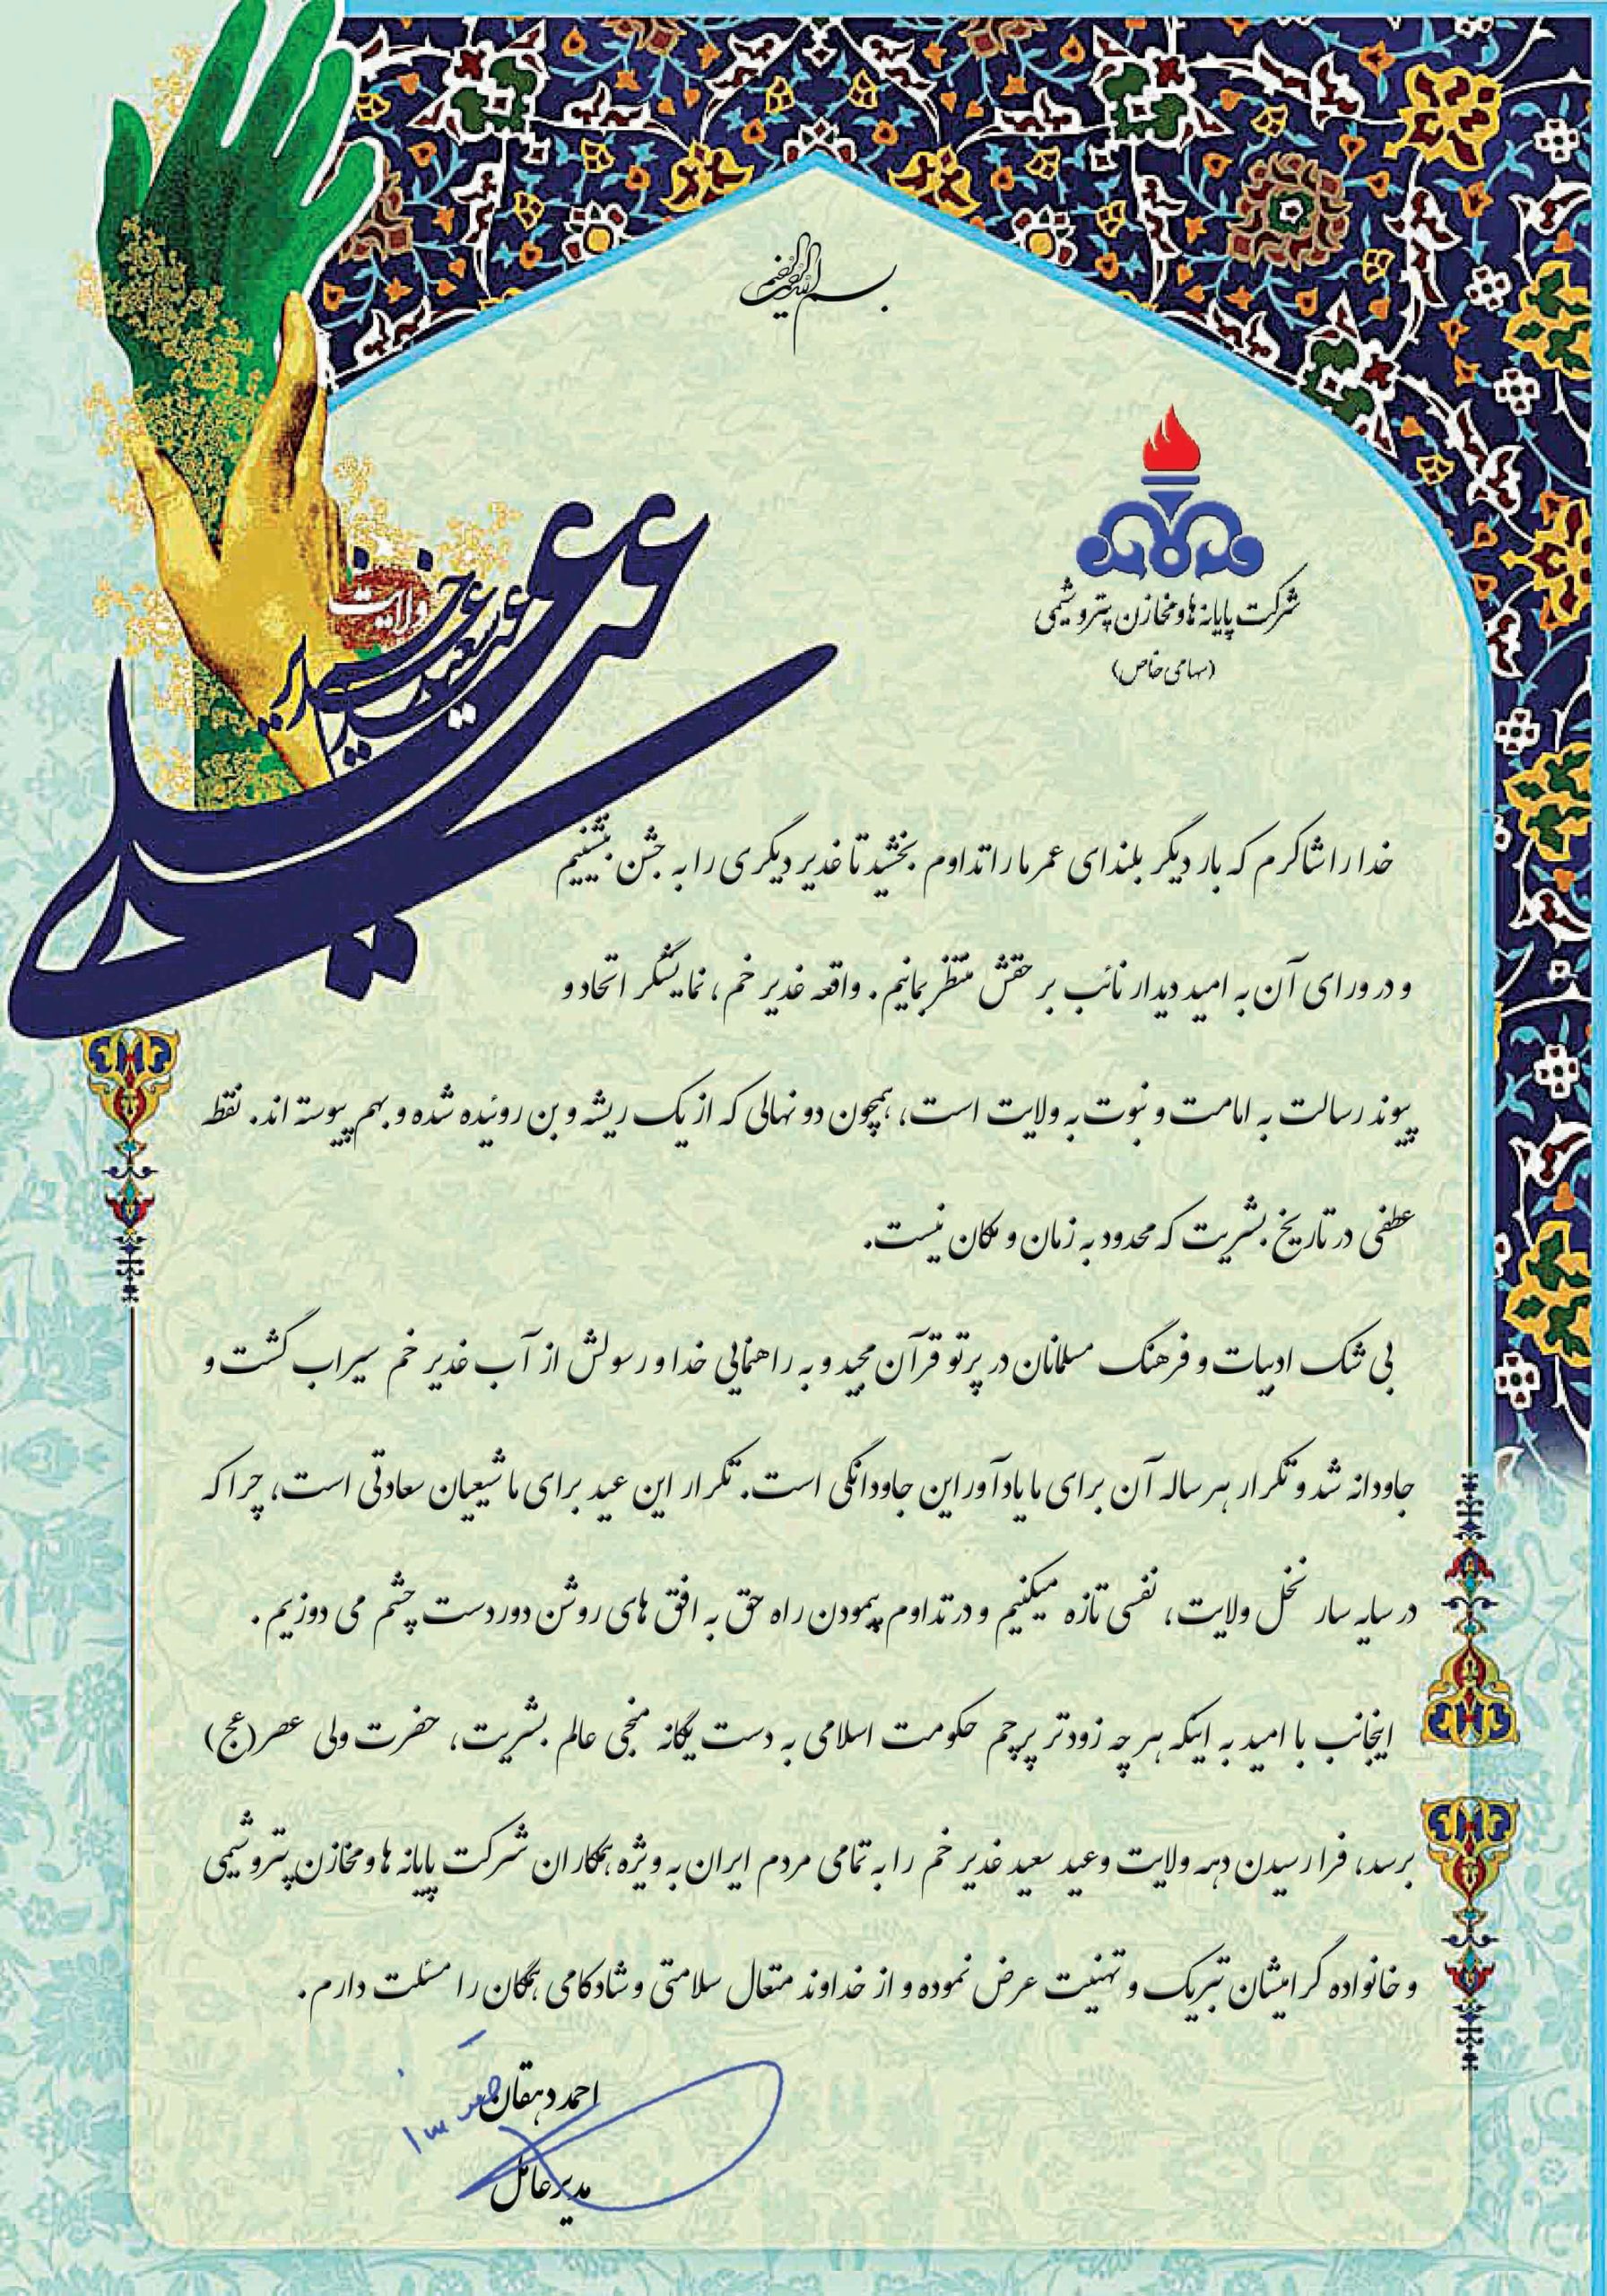 بسم الله الرحمن الرحیم
شرکت پایانه ها و مخازن پتروشیمی
(سهامی خاص)
علی
عید سعید غدیر خم
ولایت
خدا را شاکرم که بار دیگر بلندای عمر ما را تداوم بخشید تا غدیر دیگری را به جشن بنشینیم
و در ورای آن به امید دیدار نائب بر حقش منتظر بمانیم. واقعه غدیر خم، نمایشگر اتحاد و
پیوند رسالت به امامت و نبوت به ولایت است، همچون دو نهالی که از یک ریشه و بن روئیده شده و بهم پیوسته اند. نقطه
عطفی در تاریخ بشریت که محدود به زمان و مکان نیست.
بی شک ادبیات و فرهنگ مسلمانان در پرتو قرآن مجید و به راهنمایی خدا و رسولش از آب غدیر خم سیراب گشت و
جاودانه شد و تکرار هر ساله آن برای ما یادآور این جاودانگی است. تکرار این عید برای ما شیعیان سعادتی است، چرا که
در سایه سار نخل ولایت، نفسی تازه میکنیم و در تداوم پیمودن راه حق به افق های روشن دوردست چشم می دوزیم.
اینجانب با امید به اینکه هر چه زودتر پرچم حکومت اسلامی به دست یگانه منجی عالم بشریت، حضرت ولی عصر(عج)
برسد، فرا رسیدن دهه ولایت و عید سعید غدیر خم را به تمامی مردم ایران به ویژه همکاران شرکت پایانه ها و مخازن پتروشیمی
و خانواده گرامیشان تبریک و تهنیت عرض نموده و از خداوند متعال سلامتی و شادکامی همگان را مسئلت دارم.
احمد دهقان
مدیرعامل